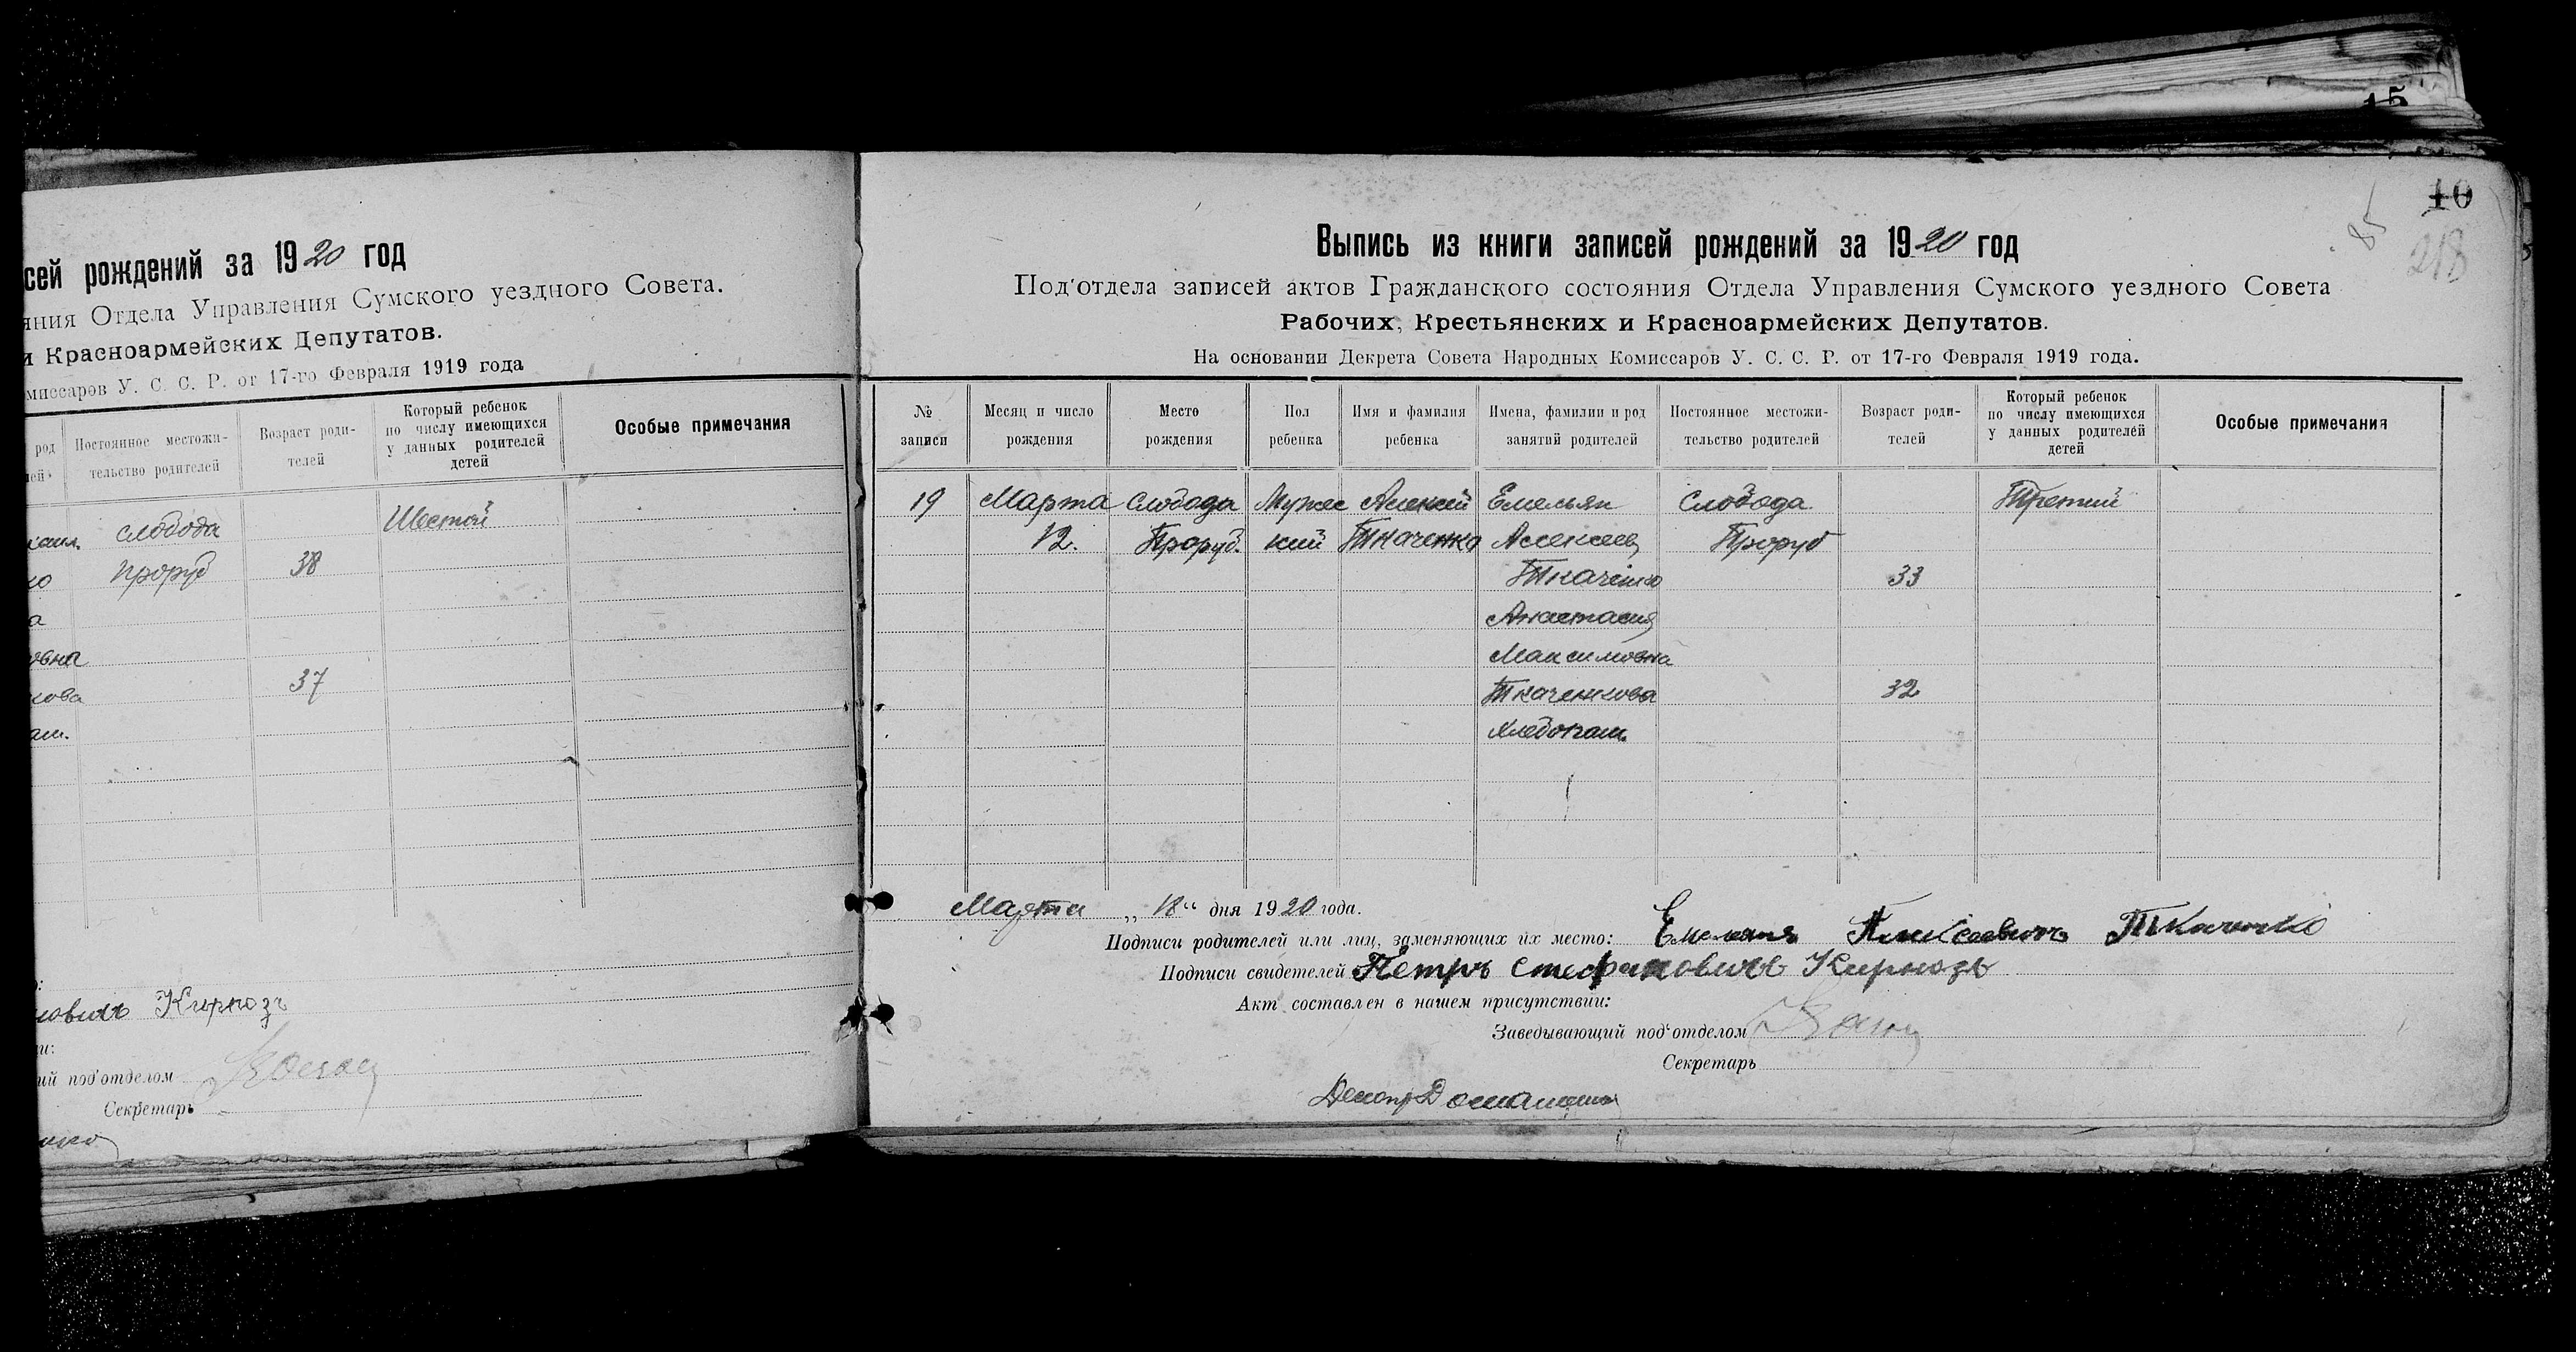 15
сей рождений за 1920 год
яния Отдела Управления Сумского уездного Совета.
и Красноармейских Депутатов.
миссаров У. С. С. Р. от 17-го Февраля 1919 года
род
Постоянное местожи-
тельство родителей
Возраст роди-
телей
Который ребенок
по числу имеющихся
у данных родителей
детей
Особые примечания
слобода
Шестой
Проруб
38
а
овна
37
кова
ович Кирнозъ
ий под'отделом
Секретарь
10
85
218
Выпись из книги записей рождений за 1920 год
Под'отдела записей актов Гражданского состояния Отдела Управления Сумского уездного Совета
Рабочих, Крестьянских и Красноармейских Депутатов.
На основании Декрета Совета Народных Комиссаров У. С. С. Р. от 17-го Февраля 1919 года.
№
записи
Месяц и число
рождения
Место
рождения
Пол
ребенка
Имя и фамилия
ребенка
Имена, фамилии и род
занятий родителей
Постоянное местожи-
тельство родителей
Возраст роди-
телей
Который ребенок
по числу имеющихся
у данных родителей
детей
Особые примечания
19 Марта Слобода Мужес Алексей Емельян Слобода Третий
12. Проруб. кий Ткаченко Алексеев Проруб
Ткаченко 33
Анастасия
Максимовна
Ткаченкова 32
хлебопаш.
Марта „18“ дня 1920 года.
Подписи родителей или лиц, заменяющих их место: Емельянъ Алексеевичъ Ткаченко
Подписи свидетелей Петръ Стефановичъ Кирнозъ
Акт составлен в нашем присутствии:
Заведывающий под'отделом
Секретарь